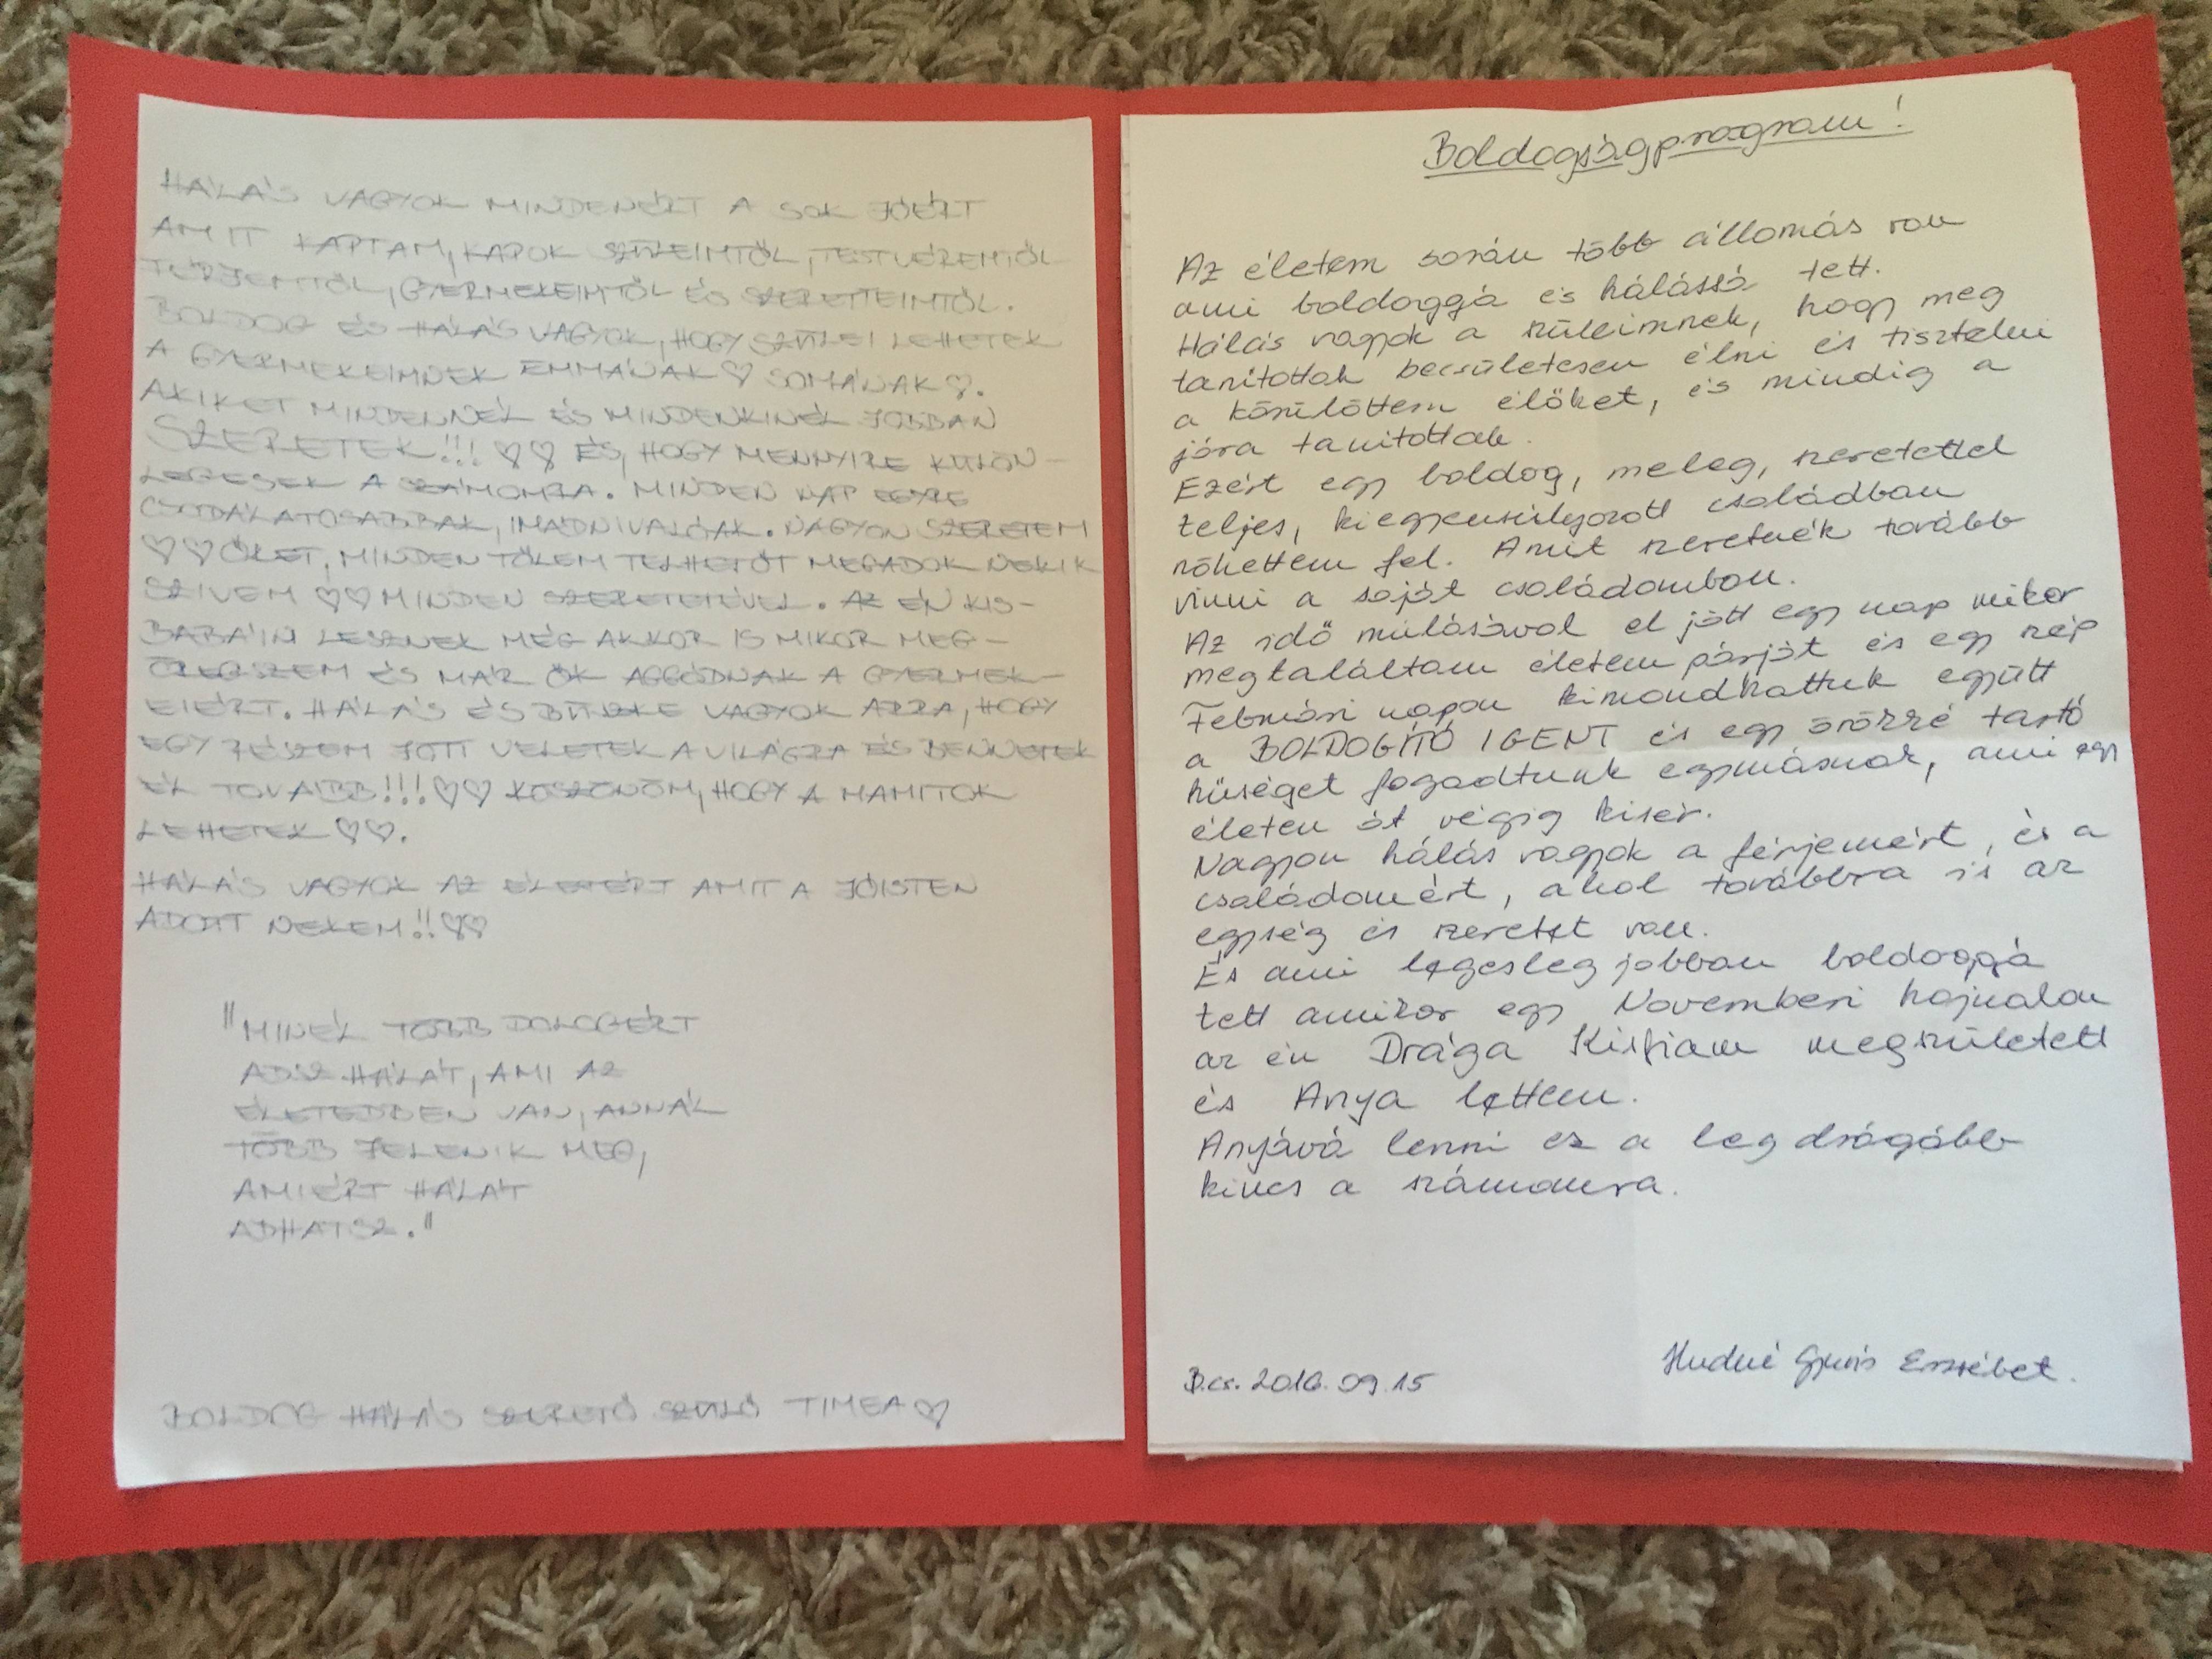 HÁLÁS VAGYOK MINDENÉRT A SOK JÓÉRT
AMIT KAPTAM, KAPOK SZÜLEIMTŐL, TESTVÉREMTŐL
FÉRJEMTŐL, GYERMEKEIMTŐL ÉS SZERETTEIMTŐL.
BOLDOG ÉS HÁLÁS VAGYOK, HOGY SZÜLEI LEHETEK
A GYERMEKEIMNEK EMMÁNAK♡ SOMÁNAK♡.
AKIKET MINDENNÉL ÉS MINDENKINÉL JOBBAN
SZERETEK!!! ♡♡ ÉS, HOGY MENNYIRE KÜLÖN-
LEGESEK A SZÁMOMRA. MINDEN NAP EGYRE
CSODÁLATOSABBAK, IMÁDNIVALÓAK. NAGYON SZERETEM
♡♡ŐKET, MINDEN TŐLEM TELHETŐT MEGADOK NEKIK
SZIVEM ♡♡MINDEN SZERETETÉVEL. AZ ÉN KIS-
BABÁIM LESZNEK MÉG AKKOR IS MIKOR MEG-
ÖREGSZEM ÉS MÁR ŐK AGGÓDNAK A GYERMEK-
EIÉRT. HÁLÁS ÉS BÜSZKE VAGYOK ARRA, HOGY
EGY RÉSZEM JÖTT VELETEK A VILÁGRA ÉS BENNETEK
ÉL TOVÁBB!!!♡♡ KÖSZÖNÖM, HOGY A MAMITOK
LEHETEK ♡♡.
HÁLÁS VAGYOK AZ ÉLETÉRT AMIT A JÓISTEN
ADOTT NEKEM!!♡♡
"MINÉL TÖBB DOLOGÉRT
ADSZ HÁLÁT, AMI AZ
ÉLETEDBEN VAN, ANNÁL
TÖBB JELENIK MEG,
AMIÉRT HÁLÁT
ADHATSZ."
BOLDOG HÁLÁS SZERETŐ SZÜLŐ TIMEA♡
Boldogságprogram!
Az életem során több állomás van
ami boldoggá és hálássá tett.
Hálás vagyok a szüleimnek, hogy meg
tanítottak becsületesen élni és tisztelni
a körülöttem élőket, és mindig a
jóra tanitottak.
Ezért egy boldog, meleg, szeretettel
teljes, kiegyensúlyozott családban
nőhettem fel. Amit szeretnék tovább
vinni a saját családomban.
Az idő múlásával el jött egy nap mikor
megtaláltam életem párját és egy szép
Februári napon kimondhattuk együtt
a BOLDOGÍTÓ IGENT és egy örökké tartó
hűséget fogadtunk egymásnak, ami egy
életen át végig kisér.
Nagyon hálás vagyok a férjemért, és a
családomért, ahol továbbra is az
egység és szeretet van.
És ami legeslegjobban boldoggá
tett amikor egy Novemberi hajnalon
az én Drága Kisfiam megszületett
és Anya lettem.
Anyává lenni ez a legdrágább
kincs a számomra.
B.cs. 2016.09.15
Erzsébet.